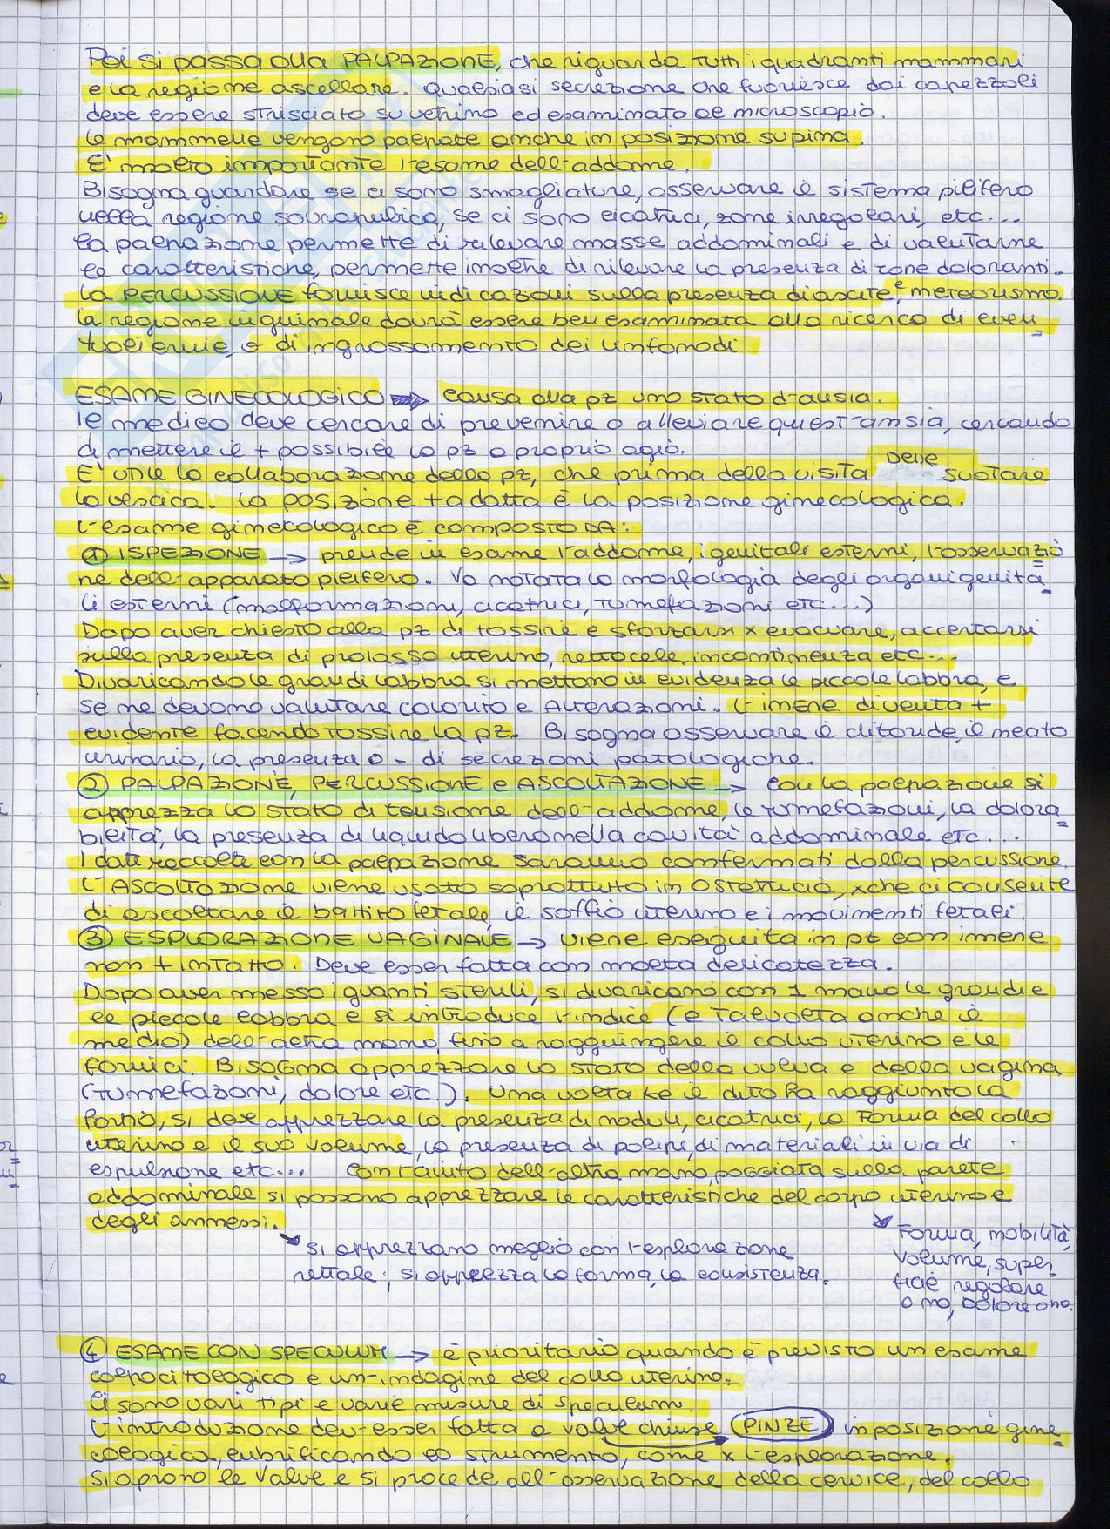 Poi si passa alla PALPAZIONE, che riguarda tutti i quadranti mammari
e la regione ascellare. Qualsiasi secrezione che fuoriesce dai capezzoli
deve essere strisciato su vetrino ed esaminato al microscopio.
Le mammelle vengono palpate anche in posizione supina.
E' molto importante l'esame dell'addome.
Bisogna guardare se ci sono smagliature, osservare il sistema pilifero
nella regione sobrapubica, se ci sono cicatrici, zone irregolari, etc...
La palpazione permette di rilevare masse addominali e di valutarne
le caratteristiche, permette inoltre di rilevare la presenza di zone doloranti.
La PERCUSSIONE fornisce indicazioni sulla presenza di ascite e meteorismo.
La regione inguinale dovrà essere ben esaminata alla ricerca di even
tuali ernie, o di ingrossamento dei linfonodi
ESAME GINECOLOGICO → causa alla pz uno stato d'ansia.
Il medico deve cercare di prevenire o alleviare quest'ansia, cercando
di mettere il + possibile la pz a proprio agio.
E' utile la collaborazione della pz, che prima della visita DEVE svuotare
la vescica. La posizione + adatta è la posizione ginecologica.
L'esame ginecologico è composto DA:
① ISPEZIONE → prende in esame l'addome, i genitali esterni, l'osservazio
ne dell'apparato pilifero. Va notata la morfologia degli organi genita
li esterni (malformazioni, cicatrici, tumefazioni etc...)
Dopo aver chiesto alla pz di tossire e sforzarsi x evacuare, accertarsi
sulla presenza di prolasso uterino, rettocele, incontinenza etc...
Divaricando le grandi labbra si mettono in evidenza le piccole labbra, e
se ne devono valutare colorito e Alterazioni. L'imene diventa +
evidente facendo tossire la pz. Bisogna osservare il clitoride, il meato
urinario, la presenza o - di secrezioni patologiche.
② PALPAZIONE, PERCUSSIONE e ASCOLTAZIONE → con la palpazione si
apprezza lo stato di tensione dell'addome, le tumefazioni, la dolora
bilità, la presenza di liquido libero nella cavità addominale etc...
I dati raccolti con la palpazione saranno confermati dalla percussione.
L'ASCOLTAZIONE viene usata soprattutto in OSTETRICIA, xche ci consente
di ascoltare il battito fetale, il soffio uterino e i movimenti fetali.
③ ESPLORAZIONE VAGINALE → viene eseguita in pz con imene
non + intatto. Deve esser fatta con molta delicatezza.
Dopo aver messo i guanti sterili, si divaricano con 1 mano le grandi e
le piccole labbra e si introduce l'indice (e talvolta anche il
medio) dell'altra mano, fino a raggiungere il collo uterino e le
fornici. Bisogna apprezzare lo stato della vulva e della vagina
(tumefazioni, dolore etc). Una volta ke il dito ha raggiunto la
fornici, si deve apprezzare la presenza di noduli, cicatrici, la forma del collo
uterino e il suo volume, la presenza di polipi, di materiali in via di
espulsione etc... Con l'aiuto dell'altra mano, poggiata sulla parete
addominale si possono apprezzare le caratteristiche del corpo uterino e
degli annessi.
si apprezzano meglio con l'esplorazione
rettale; si apprezza la forma, la consistenza.
Forma, mobilità,
volume, super
ficie regolare
o no, dolore o no.
④ ESAME CON SPECULUM → è prioritario quando è previsto un esame
colpocitologico e un'indagine del collo uterino.
Ci sono vari tipi e varie misure di speculum.
L'introduzione dev'esser fatta a valve chiuse (PINZE) in posizione gine
cologica, lubrificando lo strumento, come x l'esplorazione.
Si aprono le valve e si procede all'osservazione della cervice, del collo